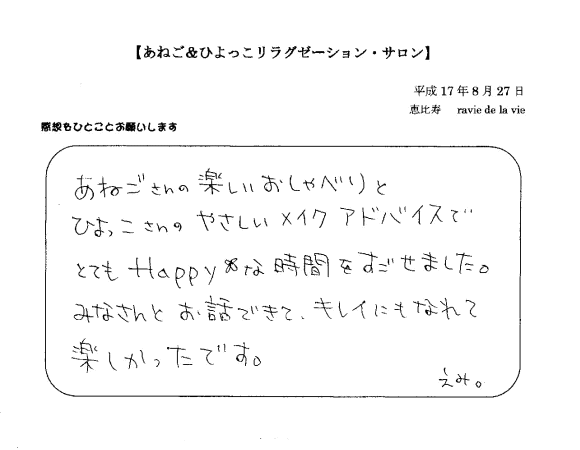 【あねご&ひよっこリラグゼーション・サロン】
平成17年8月27日
恵比寿 ravie de la vie
感想をひとことお願いします
あねごさんの楽しいおしゃべりと
ひよっこさんのやさしいメイクアドバイスで
とてもHappy*な時間をすごせました。
みなさんとお話できて、キレイにもなれて
楽しかったです。
えみ。